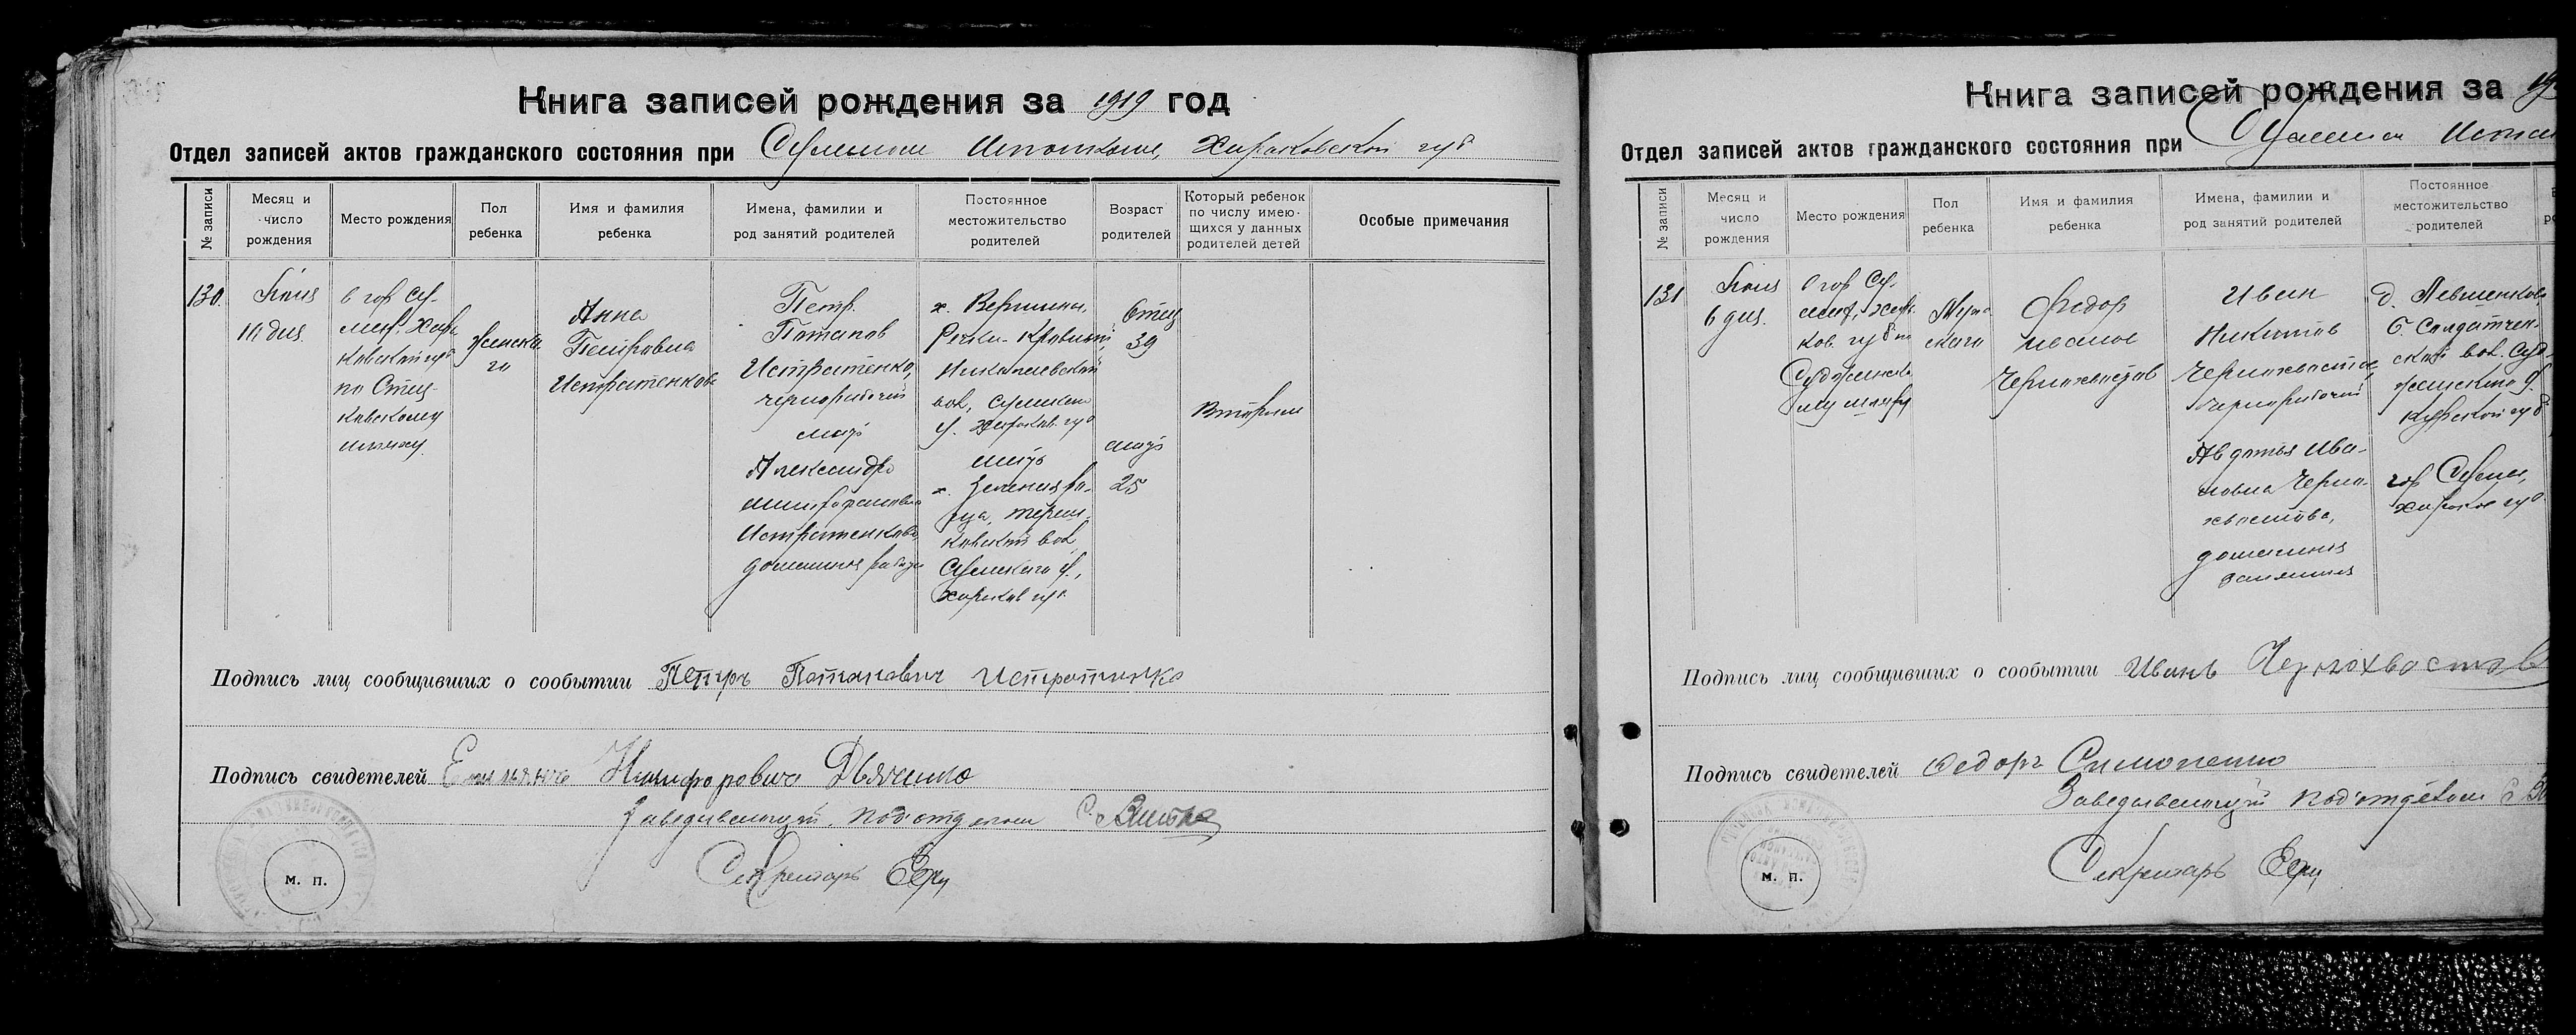 Книга записей рождения за 1919 год
Отдел записей актов гражданского состояния при Сумском Исполкоме, Харьковской губ
№ записи
Месяц и число рождения
Место рождения
Пол ребенка
Имя и фамилия ребенка
Имена, фамилии и род занятий родителей
Постоянное местожительство родителей
Возраст родителей
Который ребенок по числу имею-щихся у данных родителей детей
Особые примечания
130.
Июня
дня
в гор Су-
мах, Харь
ковской губ
по
ковскому
женска
го
Анна
Петровна
Истратенкова
Петр
Потапов
Истратенко,
чернорабочий
мать
Александра
Митрофановна
Истратенкова,
домашняя работа
х. Вершины,
Николаевской
вол, Сумского
у. Харьков. губ
мать
х.
ковской вол
Сумского у.,
Харьков губ.
Отец
39
мать
25
Вторым
Подпись лиц сообщивших о сообытии Петръ Потапович Истратенко
Подпись свидетелей Никифоровичъ Дьяченко
Заведывающий Подотделом
Секретарь
М. П.
Книга записей рождения за
Отдел записей актов гражданского состояния при Сумском
№ записи
Месяц и число рождения
Место рождения
Пол ребенка
Имя и фамилия ребенка
Имена, фамилии и род занятий родителей
Постоянное местожительство родителей
131
Июня
6 дня.
в гор Су-
мах, Харь
ков. губ по
Муж
скаго
Федор
Чернохвостов
Иван
Никитов
Чернохвостов,
чернорабочий
Авдотья Ива-
новна Черно-
хвостова,
домашния
занятия
д.
Б. Солдатчен-
ской вол. Суд-
жанскаго у.
Курской губ
гор Сумы,
Харьков губ
Подпись лиц сообщивших о сообытии Иванъ Чернохвостов
Подпись свидетелей Федоръ Симоненко
Заведывающий Подотделом
Секретарь
М. П.